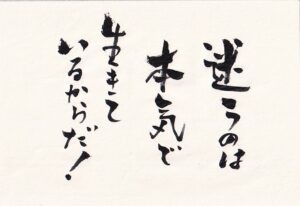 迷うのは
本気で
生きて
いるからだ!